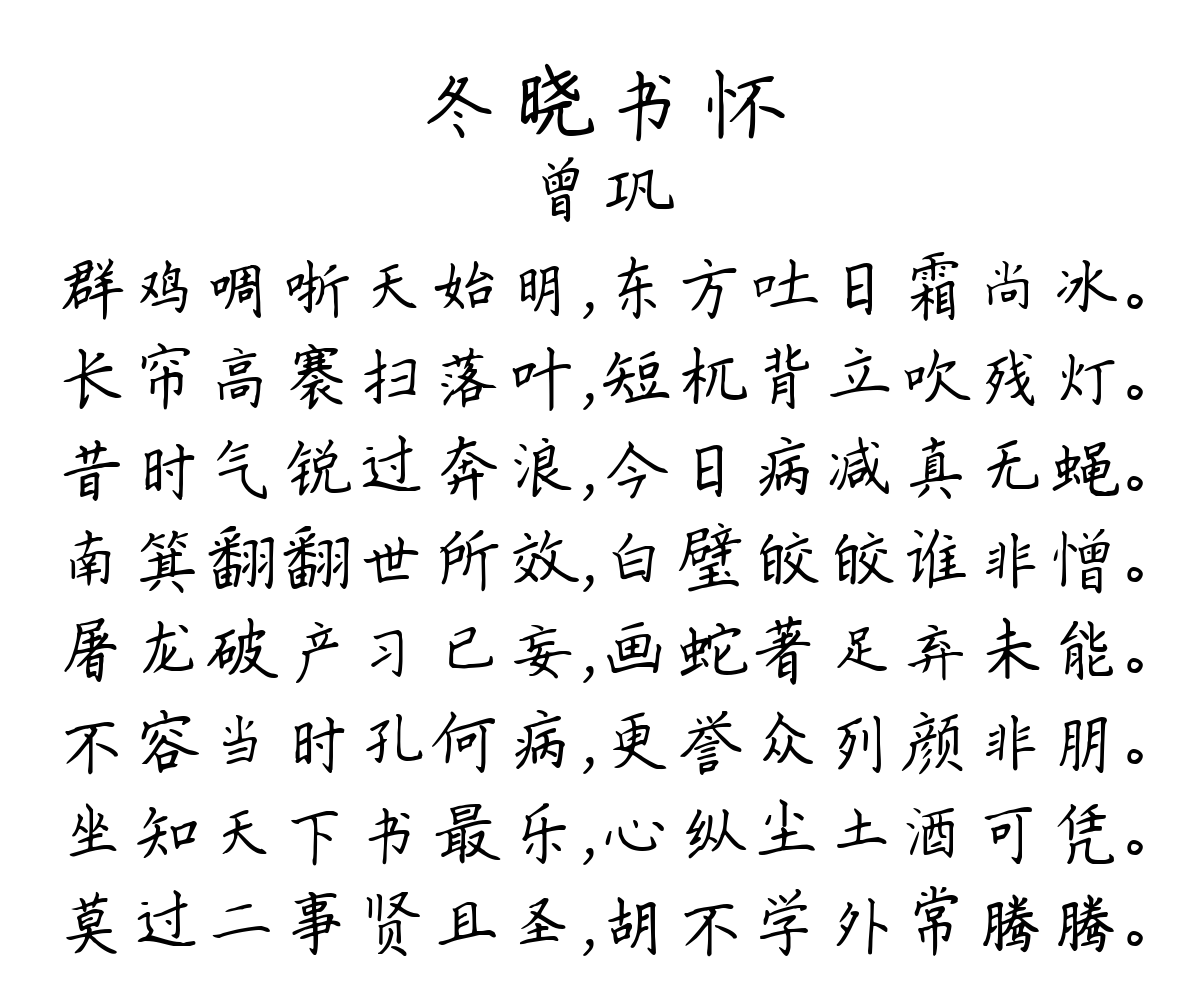 冬晓书怀
曾巩
群鸡啁哳天始明,东方吐日霜尚冰。
长帘高褰扫落叶,短杌背立吹残灯。
昔时气锐过奔浪,今日病减真无蝇。
南箕翻翻世所效,白璧皎皎谁非憎。
屠龙破产习已妄,画蛇著足弃未能。
不容当时孔何病,更誉众列颜非朋。
坐知天下书最乐,心纵尘土酒可凭。
莫过二事贤且圣,胡不学外常腾腾。